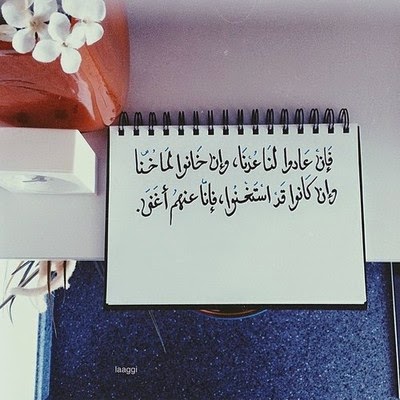 فَإِنْ عَادُوا لَنَا عُدْنَا، وَإِن خَانُوا لمَا خُنَّا
وَإِن كَانُوا قَدْ اسْتَغْنُوا، فَإِنَّا عَنهُمُ أَغْنَى.
laaggi